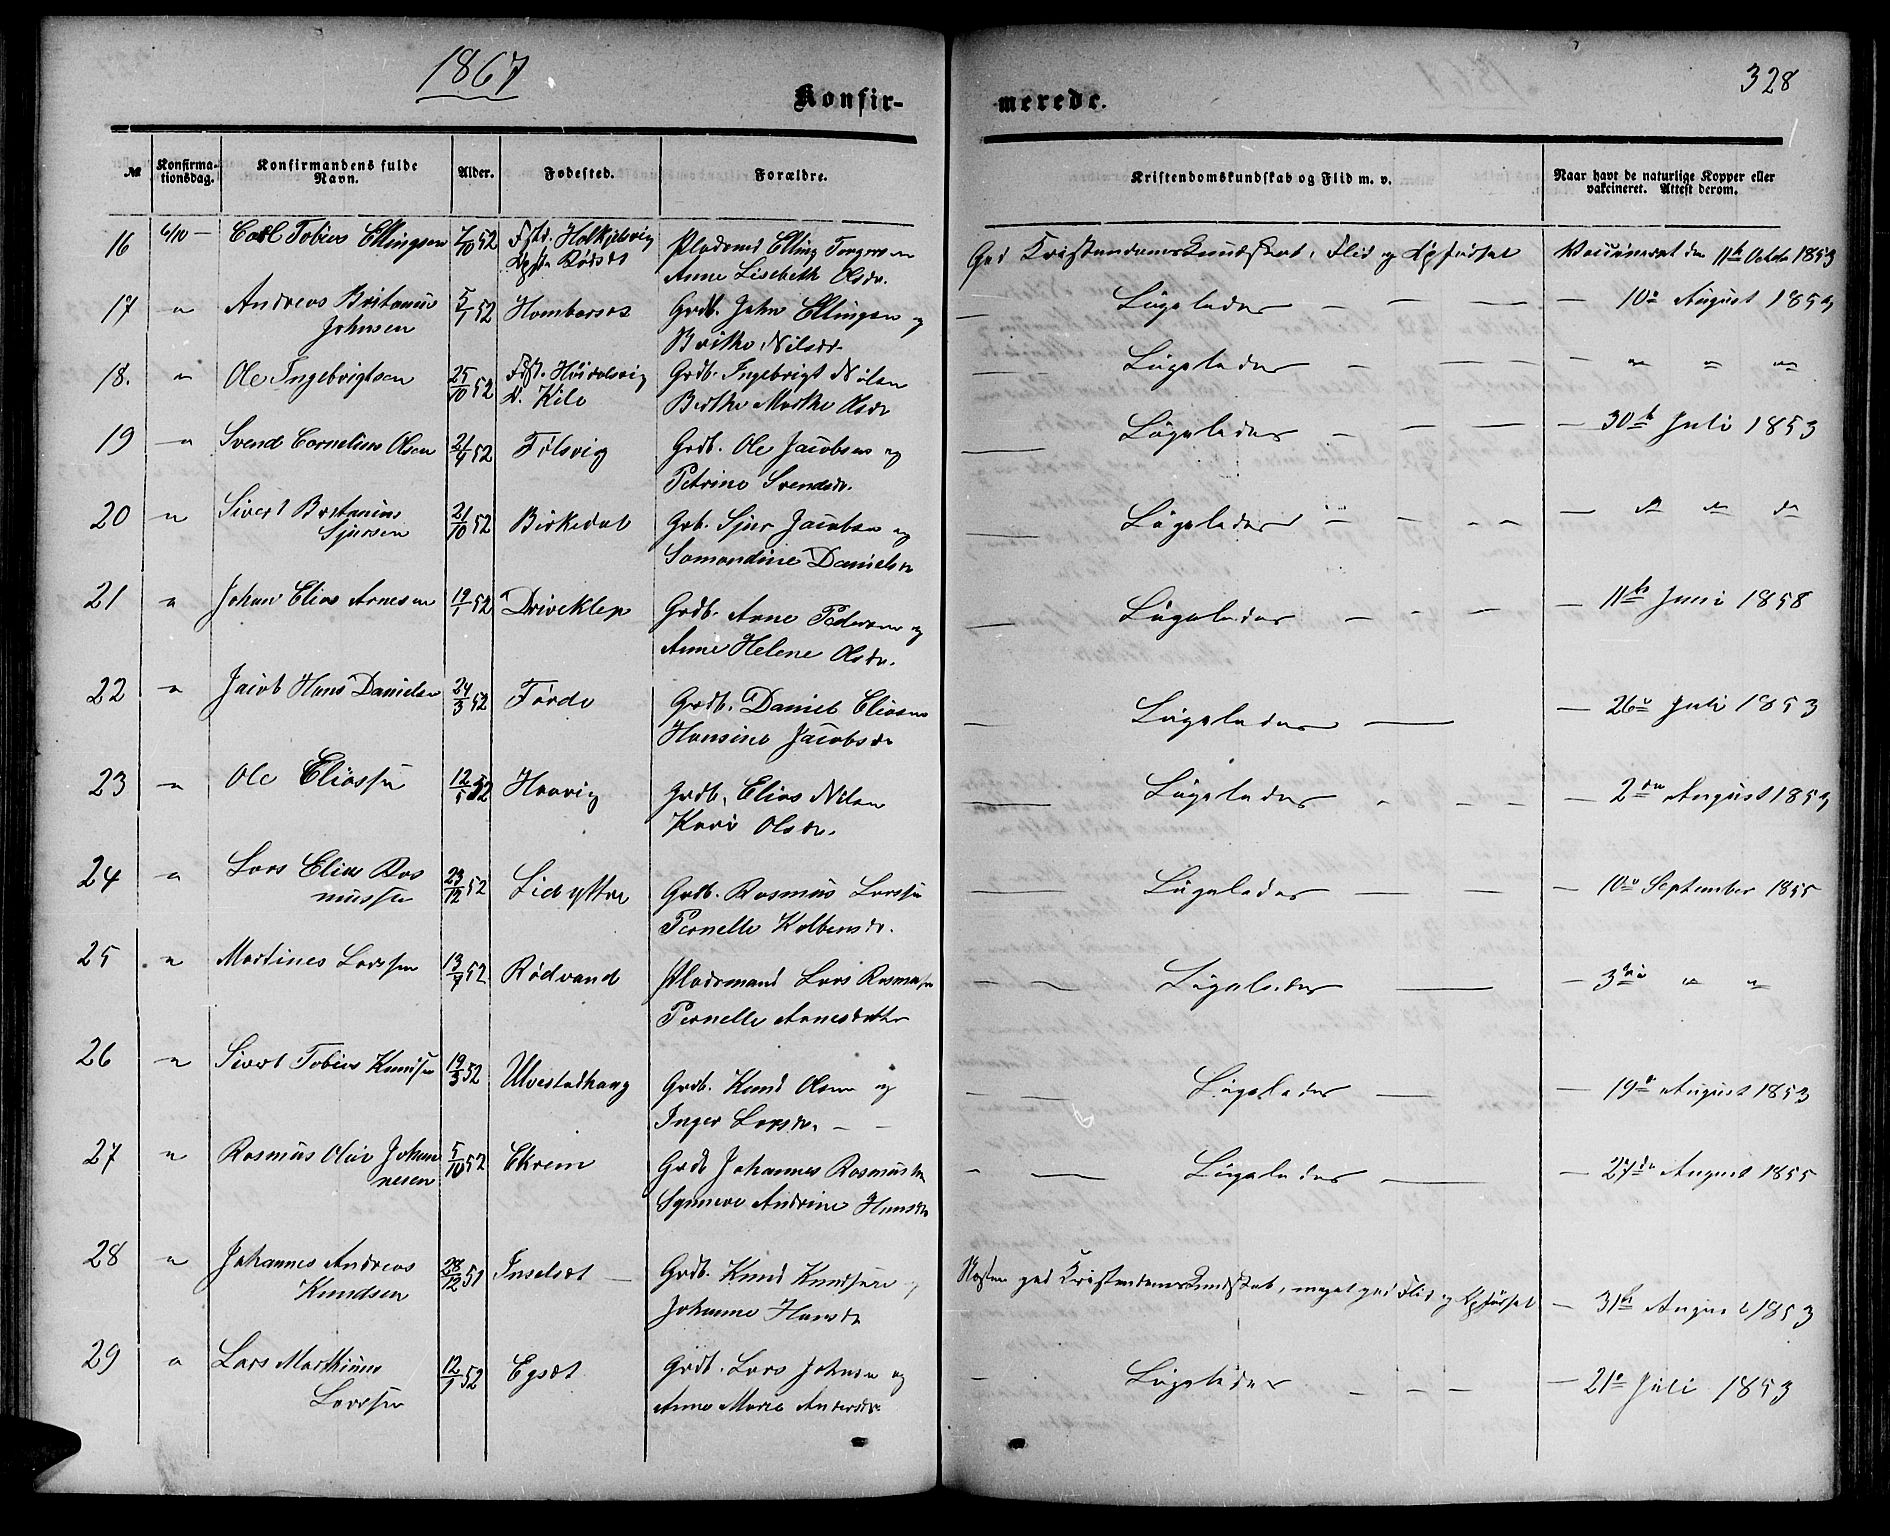 1867
328
Konfir-
merede.
№ Konfirma-tionsdag. Konfirmandens fulde Navn. Alder. Fødested. Forældre. Kristendomskundskab og Flid m. v. Naar havt de naturlige Kopper eller vakcineret. Attest derom.
16 6/10 — Carl Tobias Ellingsen 52 Holkjelsvig Pladsmd Elling God Kristendomskundskab, Flid og Opførsel Vaccineret den 11te Octob 1853
Anne Lisebeth Olsdr.
17 " Andreas Britanius 5/1 52 Hombersæt Grdb. John Ellingsen og — Ligeledes — — — 10de August 1853
Johnsen Brithe Nilsdr.
18. " Ole Ingebrigtsen 25/10 52 Fgst. Høidalsvig Grdb. Ingebrigt Nilsen — Ligeledes — — — " " "
Kile Berthe Marthe Olsdr
19 " Svend Cornelius Olsen 21/4 52 Følsvig Grdb. Ole Jacobsen og — Ligeledes — — — 30te Juli 1853
Petrine Svendsdr.
20 " Sivert Britanius 21/10 52 Birkedal Grb. Sjur Jacobsen og — Ligeledes — — — " " "
Sjursen Samondine Danielsdr
21 " Johan Elias Arnesen 19/1 52 Driveklep Grdb. Arne Pedersen og — Ligeledes — — 11te Juni 1858
Anne Helene Olsdr.
22 " Jacob Hans Danielsen 24/3 52 Førde Grdb. Daniel Eliasen — Ligeledes — — 26de Juli 1853
Hansine Jacobsdr
23 " Ole Eliassen 12/5 52 Haavig Grdb. Elias Nilsen — Ligeledes — — — 2den August 1853
Kari Olsdr.
24 " Lars Elias Ras 23/12 52 Lid yttre Grdb. Rasmus Larssen — Ligeledes — — 10de September 1855
mussen Pernelle Kolbensdr.
25 " Martines Larssen 13/7 52 Rødvand Pladsmand Lars Rasmussen — Ligeledes — — 3die " "
Pernelle Arnesdatter
26 " Sivert Tobias Knudsen 19/3 52 Ulvestadhaug Grdb. Knud Olsen og — Ligeledes — — 19de August 1853
Inger Larsdr. — —
27 " Rasmus Olai Johan 5/10 52 Ekrem Grdb Johannes Rasmussen — Ligeledes — — 27de August 1855
nesen Synneve Andrine Hansdr
28 " Johannes Andreas 28/12 51 Inselset — Grdb. Knud Knudsen Næsten god Kristendomskundskab, meget god Flid og Opførsel — 31te August 1853
Knudsen Johanne Hansdr
29 " Lars Marthinus 12/1 52 Egset Grdb. Lars Johnsen og — Ligeledes — — — 21de Juli 1853
Larssen Anne Marie Andersdr.